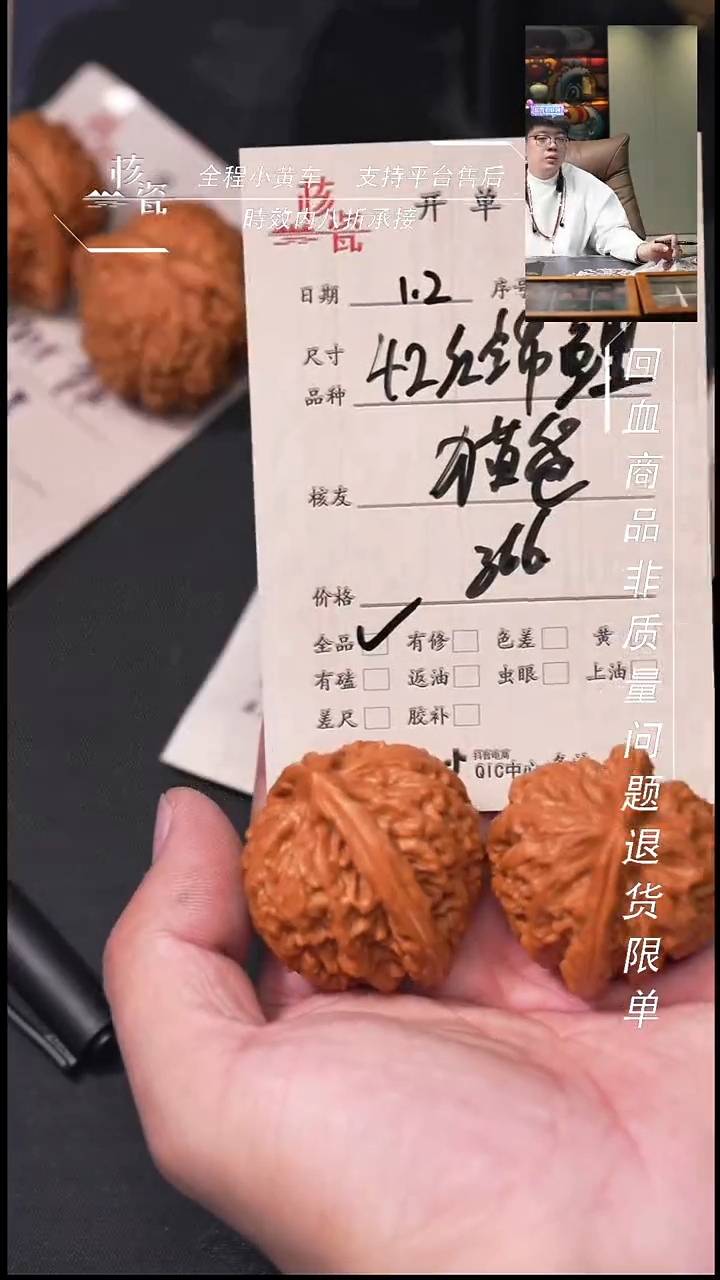 核瓷
全程小黄车 支持平台售后
時效内八折承接
核瓷
开单
日期 1.2 序号
尺寸
品种 42左锦鲤
核友 黄爸
价格 366
全品 ✓ 有修 色差 黄
有磕 返油 虫眼 上油
差尺 胶补
抖音电商
QIC中心
回血商品非质量问题退货限单